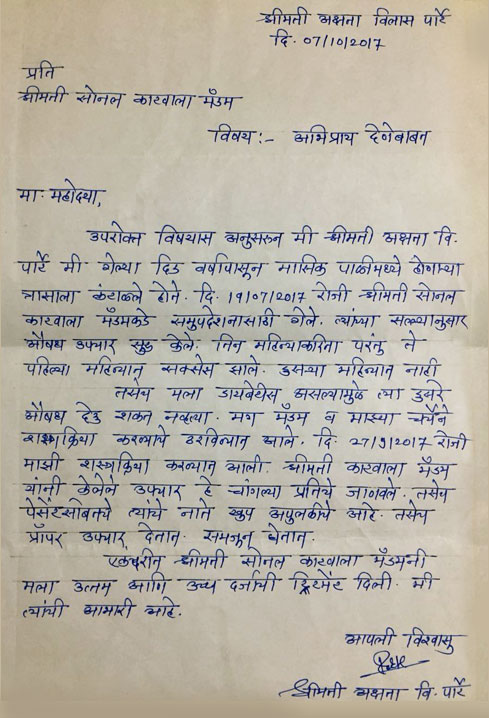 श्रीमती अक्षता विलास पार्टे
दि. 07/10/2017
प्रति
श्रीमती सोनल कारवाला मॅडम
विषय:- अभिप्राय देणेबाबत
मा. महोदया,
उपरोक्त विषयास अनुसरुन मी श्रीमती अक्षता वि.
पार्टे मी गेल्या दिड वर्षापासून मासिक पाळीमध्ये होणाऱ्या
त्रासाला कंटाळले होते. दि. 19/07/2017 रोजी श्रीमती सोनल
कारवाला मॅडमकडे समुपदेशनासाठी गेले. त्यांच्या सल्ल्यानुसार
औषध उपचार सुरु केले. तिन महिन्याकरिता परंतु ते
पहिल्या महिन्यात सक्सेस झाले. दुसऱ्या महिन्यात नाही
तसेच मला डायबेटीस असल्यामुळे त्या दुसरे
औषध देवु शकत नव्हत्या. मग मॅडम व माझ्या चर्चेने
शस्त्रक्रिया करण्याचे ठरविण्यात आले. दि. 27/9/2017 रोजी
माझी शस्त्रक्रिया करण्यात आली. श्रीमती कारवाला मॅडम
यांनी केलेले उपचार हे चांगल्या प्रतिचे जाणवले. तसेच
पेसेंटसोबतचे त्यांचे नाते खुप आपुलकीचे आहे. तसेच
प्रॉपर उपचार देतात. समजुन घेतात.
एकंदरीत श्रीमती सोनल कारवाला मॅडमनी
मला उत्तम आणि उच्च दर्जाची ट्रिटमेंट दिली. मी
त्यांची आभारी आहे.
आपली विश्वासु
श्रीमती अक्षता वि. पार्टे